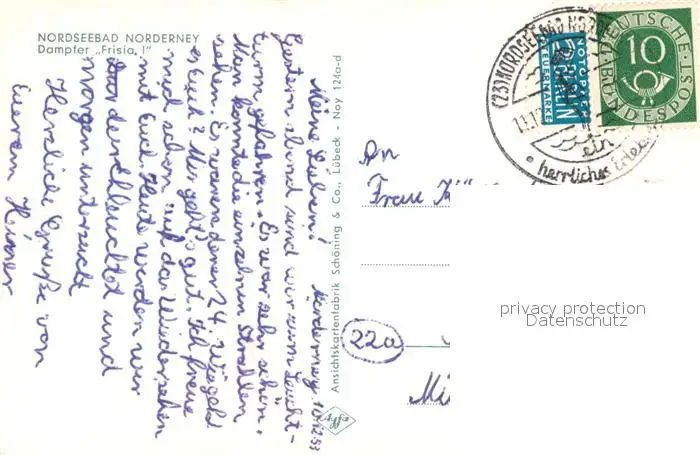 NORDSEEBAD NORDERNEY
Dampfer „Frisia I"
Norderney, 10.12.53
Meine Lieben!
Gestern abend sind wir zum Leucht-
turm gefahren. Es war sehr schön.
Man konnte die einzelnen Strahlen
sehen. Es waren derer 24. Wie geht
es Euch? Mir geht's gut. Ich freue
mich schon auf das Wiedersehen
mit Euch. Heute werden wir
durchleuchtet und
morgen untersucht
Herzliche Grüße von
Eurem Heiner
Ansichtskartenfabrik Schöning & Co., Lübeck - Noy 124a-d
Agfa
An
Frau
22a
(23) NORDSEEBAD NORD
ein
herrliches Erleb
NOTOPFER
2 BERLIN
STEUERMARKE
DEUTSCHE
BUNDESPOST
10
privacy protection
Datenschutz